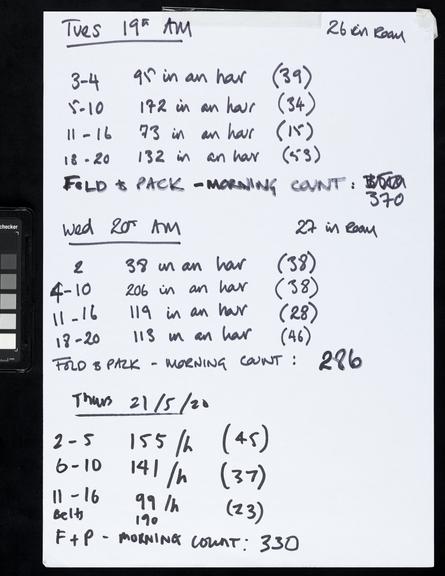 Tues 19th AM
26 in Room
3-4 95 in an hour (39)
5-10 172 in an hour (34)
11-16 73 in an hour (15)
18-20 132 in an hour (53)
FOLD & PACK - MORNING COUNT:
370
Wed 20th AM
27 in Room
2 38 in an hour (38)
4-10 206 in an hour (38)
11-16 119 in an hour (28)
18-20 113 in an hour (46)
FOLD & PACK - MORNING COUNT: 286
Thurs 21/5/20
2-5 155/h (45)
6-10 141/h (37)
11-16 99/h (23)
Belts 190
F+P - MORNING COUNT: 330
checker